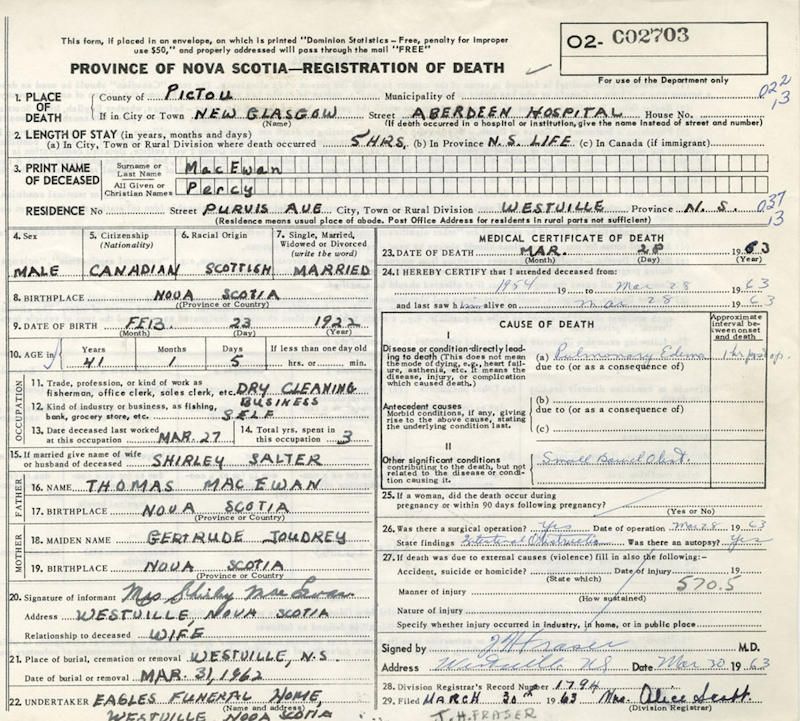 This form, if placed in an envelope, on which is printed "Dominion Statistics – Free, penalty for improper
use $50," and properly addressed will pass through the mail "FREE"
PROVINCE OF NOVA SCOTIA—REGISTRATION OF DEATH
02- C02703
For use of the Department only
022
13
1. PLACE OF DEATH
County of PICTOU Municipality of
If in City or Town NEW GLASGOW Street ABERDEEN HOSPITAL House No.
(Name) (If death occurred in a hospital or institution, give the name instead of street and number)
2. LENGTH OF STAY (in years, months and days)
(a) In City, Town or Rural Division where death occurred 5 HRS. (b) In Province N.S. LIFE (c) In Canada (if immigrant)
3. PRINT NAME OF DECEASED
Surname or Last Name MacEwan
All Given or Christian Names Percy
RESIDENCE No Street PURVIS AVE City, Town or Rural Division WESTVILLE Province N.S.
037
13
(Residence means usual place of abode. Post Office Address for residents in rural parts not sufficient)
4. Sex
MALE
5. Citizenship (Nationality)
CANADIAN
6. Racial Origin
SCOTTISH
7. Single, Married, Widowed or Divorced (write the word)
MARRIED
8. BIRTHPLACE NOVA SCOTIA
(Province or Country)
9. DATE OF BIRTH FEB. 23 1922
(Month) (Day) (Year)
10. AGE in Years Months Days If less than one day
41 1 5 hrs. or min.
OCCUPATION
11. Trade, profession, or kind of work as
fisherman, office clerk, sales clerk, etc. DRY CLEANING
12. Kind of industry or business, as fishing, BUSINESS
bank, grocery store, etc. SELF
13. Date deceased last worked
at this occupation MAR. 27
14. Total yrs. spent in
this occupation 3
15. If married give name of wife
or husband of deceased SHIRLEY SALTER
FATHER
16. NAME THOMAS MACEWAN
17. BIRTHPLACE NOVA SCOTIA
(Province or Country)
MOTHER
18. MAIDEN NAME GERTRUDE JOUDREY
19. BIRTHPLACE NOVA SCOTIA
(Province or Country)
20. Signature of informant Mrs Shirley MacEwan
Address WESTVILLE, NOVA SCOTIA
Relationship to deceased WIFE
21. Place of burial, cremation or removal WESTVILLE, N.S.
Date of burial or removal MAR. 31, 1962
22. UNDERTAKER EAGLES FUNERAL HOME,
(Name and address)
WESTVILLE NOVA SCOTIA
MEDICAL CERTIFICATE OF DEATH
23. DATE OF DEATH MAR. 28 1963
(Month) (Day) (Year)
24. I HEREBY CERTIFY that I attended deceased from:
1954 19 to Mar 28 1963
and last saw him alive on mar 28 1963
CAUSE OF DEATH
Approximate interval between onset and death
I
Disease or condition directly leading to death (This does not mean the mode of dying, e.g., heart failure, asthenia, etc. It means the disease, injury, or complication which caused death.)
(a) Pulmonary Edema 1 hr post op.
due to (or as a consequence of)
Antecedent causes
Morbid conditions, if any, giving rise to the above cause, stating the underlying condition last.
(b)
due to (or as a consequence of)
(c)
II
Other significant conditions
contributing to the death, but not related to the disease or condition causing it.
Small Bowel Obst.
25. If a woman, did the death occur during
pregnancy or within 90 days following pregnancy?
(Yes or No)
26. Was there a surgical operation? Yes Date of operation Mar 28 1963
State findings Intestinal Obstruction Was there an autopsy? Yes
27. If death was due to external causes (violence) fill in also the following:–
Accident, suicide or homicide? Date of injury 19
(State which)
Manner of injury 570.5
(How sustained)
Nature of injury
Specify whether injury occurred in industry, in home, or in public place
Signed by J H Fraser M.D.
Address Westville NS Date Mar 30 1963
28. Division Registrar's Record Number 1794
29. Filed MARCH 30th 1963 Mrs. Alice Scott
(Division Registrar)
J.H. FRASER